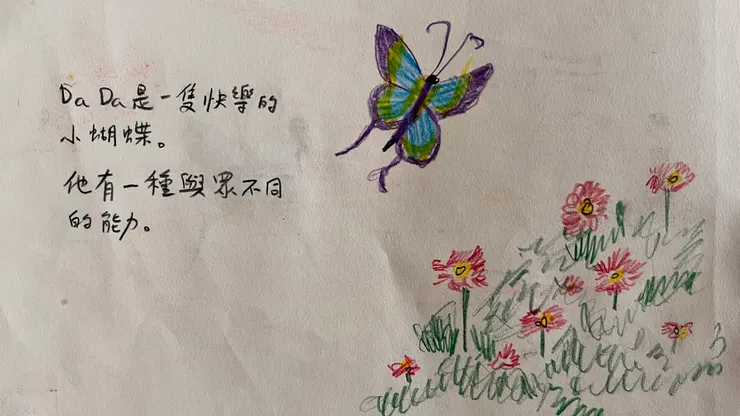 Da Da是一隻快樂的
小蝴蝶。
他有一種與眾不同
的能力。